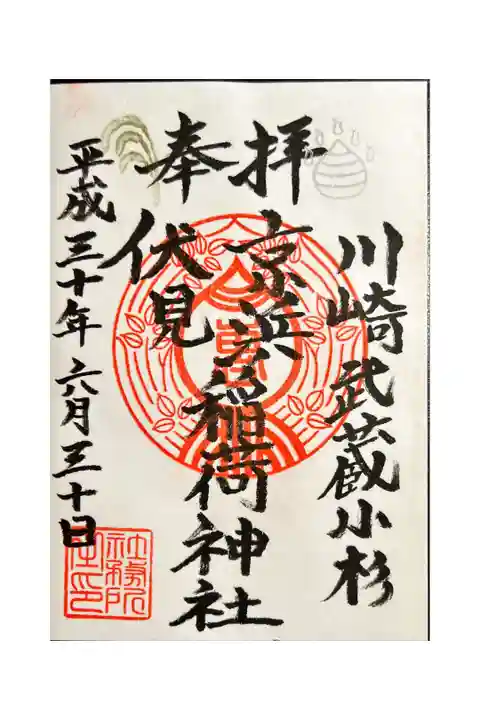 川崎 武蔵小杉
奉拝
京濱
伏見
稲荷神社
平成三十年六月三十日
社務所
之印